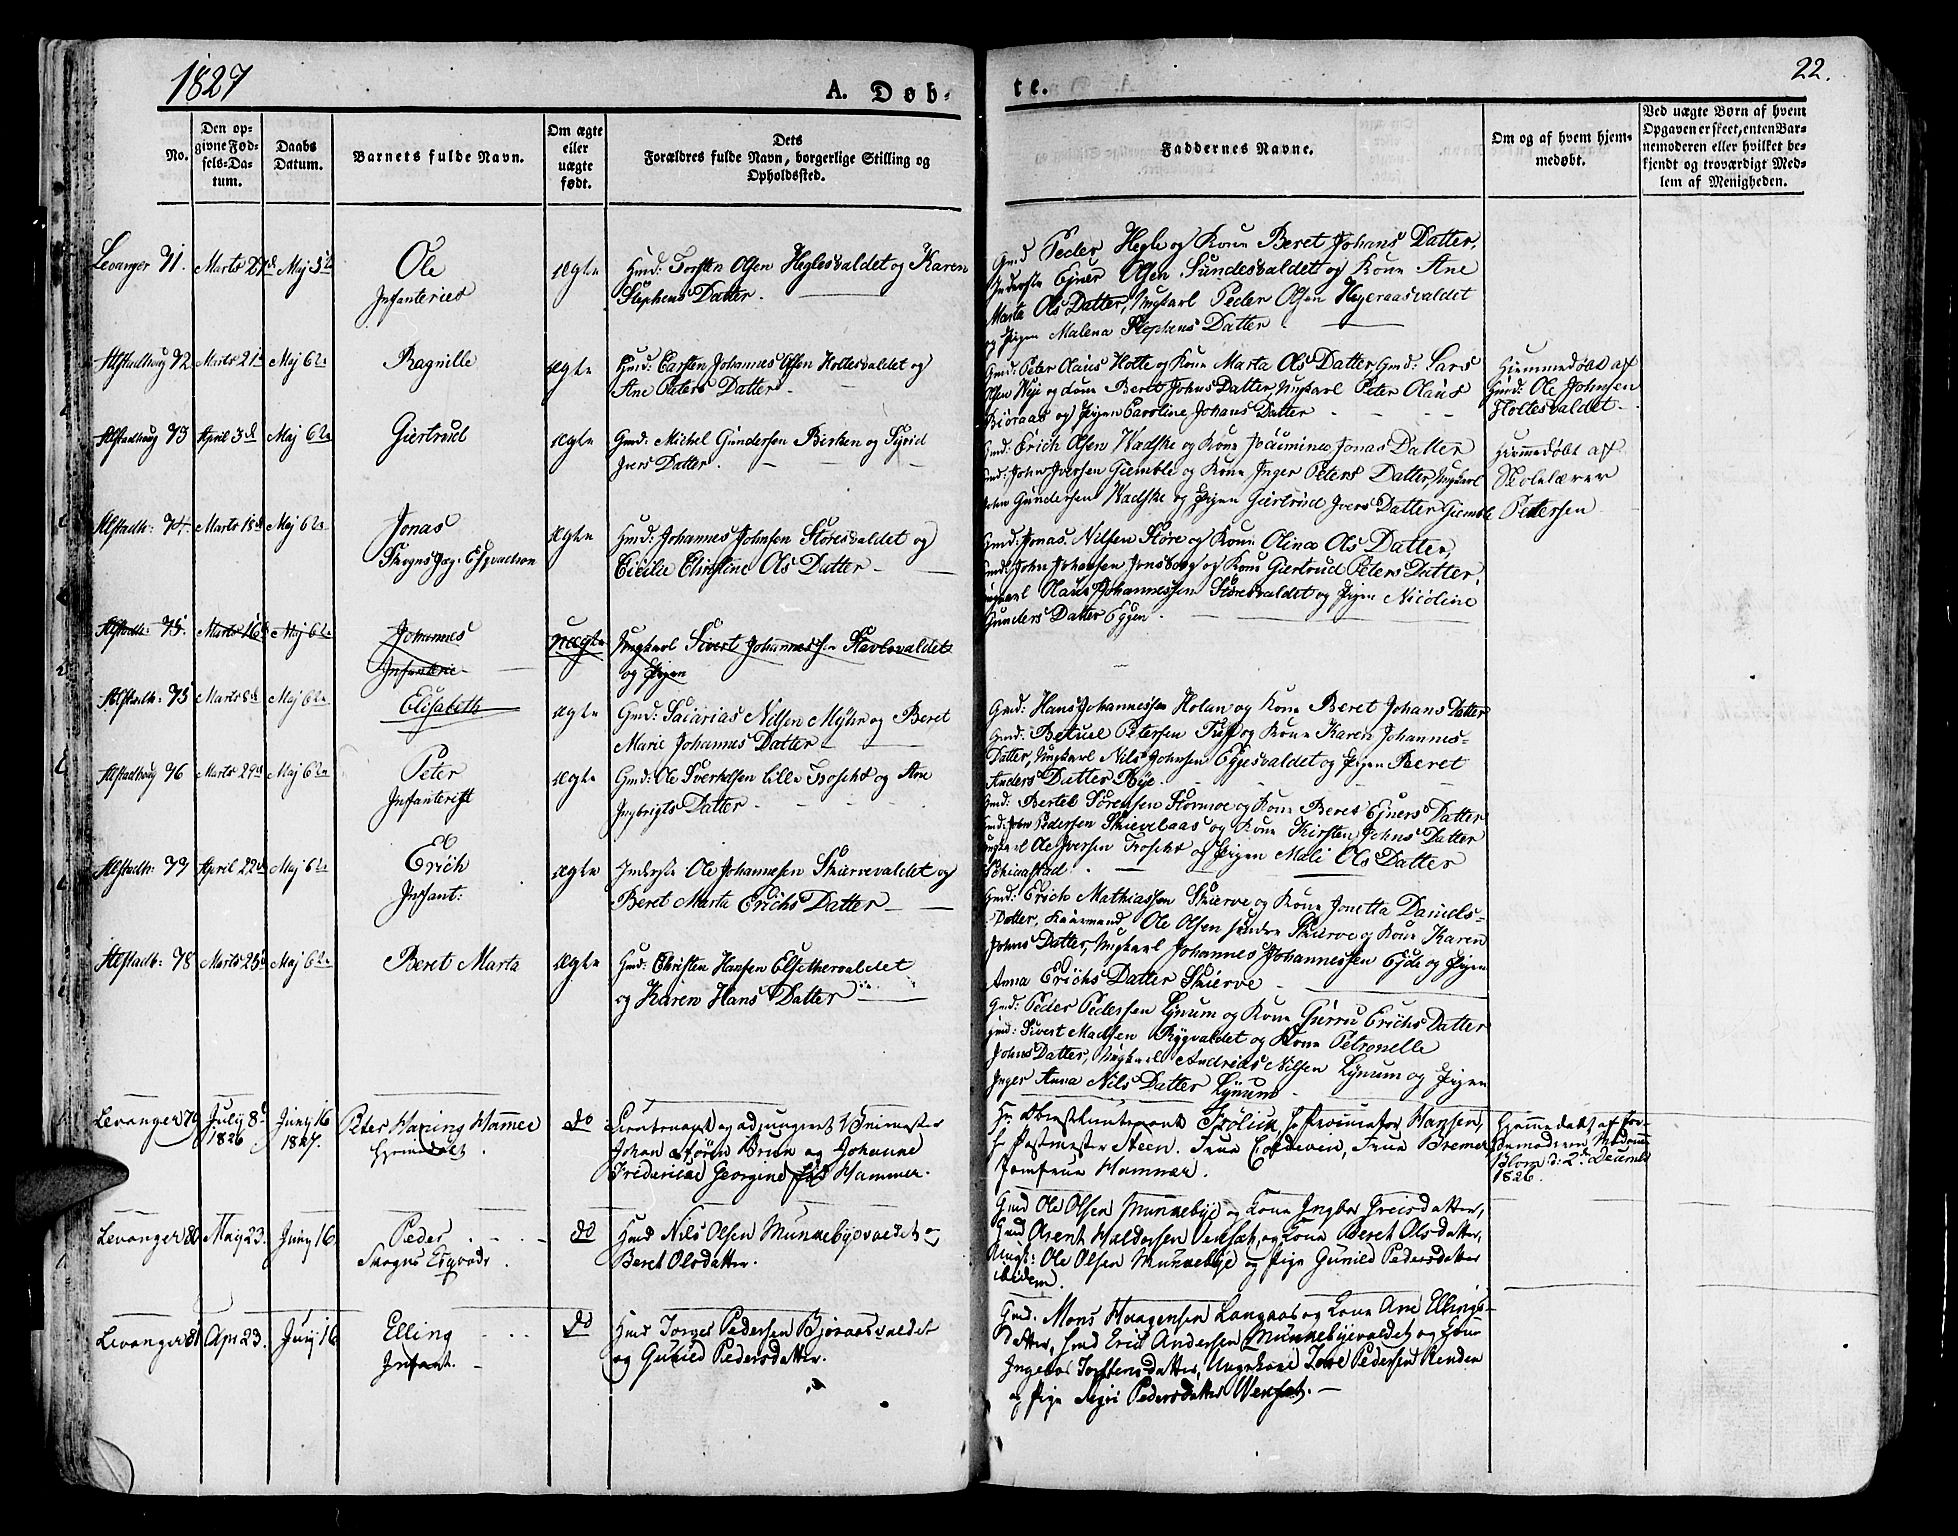 1827
A. Døb-
te.
22.
No.
Den op-
givne Fød-
sels-Da-
tum.
Daabs
Datum.
Barnets fulde Navn.
Om ægte
eller
uægte
født.
Dets
Forældres fulde Navn, borgerlige Stilling og
Opholdssted.
Faddernes Navne.
Om og af hvem hjem-
medøbt.
Ved uægte Børn af hvem
Opgaven er skeet, enten Bar-
nemoderen eller hvilket be-
kjendt og troværdigt Med-
lem af Menigheden.
Levanger 71. Marts 27d Maj 3die
Ole
Infanteries
ægte
Huusmd: Torsten Olsen Heglesvaldet og Karen
Stephens Datter.
Gmd Peder Hegle og Kone Beret Johans Datter,
Inderste Ejner Olsen Sundesvaldet og Kone Ane
Marta Ols Datter, Ungkarl Peder Olsen Hegeraasvaldet
og Pigen Malena Stephens Datter
Alstadhoug 72 Marts 21 Maj 6te
Ragnille
ægte
Hmd: Carsten Johannes Olsen Holtesvaldet og
Ane Peters Datter
Gmd: Peter Olaus Holte og Kone Marta Ols Datter, Gmd: Lars
Olsen Nye og Kone Beret Johns Datter, Ungkarl Peter Olaus
Biöraas og Pigen Caroline Johans Datter
Hiemmedøbt af
Hmd: Ole Johnsen
Holtesvaldet
Alstadhoug 73 April 3d Maj 6te
Giertrud
ægte
Gmd: Michel Gundersen Birken og Sigrid
Ivers Datter.
Gmd: Erich Olsen Wadske og Kone Jonas Datter
Gmd: John Iversen Giemble og Kone Inger Peters Datter, Ungkarl
John Gundersen Wadske og Pigen Giertrud Ivers Datter Giemble
Hiemmedøbt af
Skolelærer
Pettersen
Alstadh: 74. Marts 18d Maj 6te
Jonas
ægte
Hmd: Johannes Johnsen Störesvaldet og
Cicilie Christine Ols Datter
Gmd: Jonas Nilsen Störe og Kone Olina Ols Datter,
Gmd: John Johansen Jonsborg og Kone Giertrud Peters Datter,
Ungkarl Olaus Johannessen Störesvaldet og Pigen Nicoline
Gunders Datter Eggen.
Alstadh: 75. Marts 16d Maj 6te
Johannes
Infanterie
uægte
Ungkarl Sivert Johannessen
og Pigen
Alstadh: 75 Marts 8d Maj 6te
Elisabeth
ægte
Gmd: Sacarias Nilsen Myhr og Beret
Marie Johannes Datter
Gmd: Hans Johannessen Holan og Kone Beret Johans Datter
Gmd: Betuel Petersen Tuf og Kone Karen Johannes-
Datter, Ungkarl Nils Johnsen Eggesvaldet og Pigen Beret
Anders Datter Rye
Alstadhoug 76 Marts 29d Maj 6te
Peter
Infanterist
ægte
Gmd: Ole Sverkelsen lille og Ane
Ingbrigts Datter
Gmd: Bertel Sörensen Flormoe og Kone Beret Ejners Datter
Gmd: John Pedersen Skievelaas og Kone Kirsten Johns Datter
Ungkarl Ole Iversen og Pigen Mali Ols Datter
Alstadh: 77 April 22d Maj 6te
Erich
Infant:
ægte
Inderste Ole Johannesen Skiervevaldet og
Beret Marta Erichs Datter
Gmd: Erich Mathiassen Skierve og Kone Jonetta Daniels-
Datter, Kaarmand Ole Olsen søndre Skierve og Kone Karen
Johns Datter, Ungkarl Johannes Johannessen Eyde og Pigen
Anna Erichs Datter Skierve
Alstadh: 78 Marts 25d Maj 6te
Beret Marta
ægte
Hmd: Christen Hansen Elsethervaldet
og Karen Hans Datter
Gmd: Peder Pedersen Lynum og Kone Gurru Erichs Datter
Hmd: Sivert Madsen Rygvaldet og Kone Petronelle
Johns Datter, Ungkarl Andreas Nilsen Lynum og Pigen
Inger Anna Nils Datter Lynum
Levanger 79 July 8d
1826
Juny 16
1827.
Peter Haning Hammer
Hjemdøbt.
do
Lieutenant og adjungeret Veimester
Johan Brun og Johanne
Fredericae Georgine Hammer.
Hr Obristlieutenant Frölich, Hr Procurator Hansen,
Hr Postmester Steen, Frue Coldevin, Frue Bremer
Jomfrue Hammer.
Hjemmedøbt af Jor-
demoderen Madame
Blom d: 2d Decembr
1826.
Levanger 80 May 23. Juny 16
Peder
do
Huusmd Nils Olsen Munkebyevaldet og
Beret Olsdatter.
Gmd Ole Olsen Munkebye og Kone Ingbor Greisdatter,
Gmd Arent Haldorsen Venset, og Kone Beret Olsdatter,
Ungk: Ole Olsen Munkebye og Pige Gunild Pedersdatter
ibidem.
Levanger 81 Apr 23. Juny 16
Elling
Infant.
do
Huusmd Torger Pedersen Bjøraasvaldet
og Gunild Pedersdatter.
Gmd. Mons Haagensen Langaas og Kone Ane Ellings-
datter, Hmd Eric Andersen Munkebyevaldet og Kone
Ingebor Torstensdatter, Ungekarl Tore Pedersen Renden
og Pige Sigri Pedersdatter Wenset.